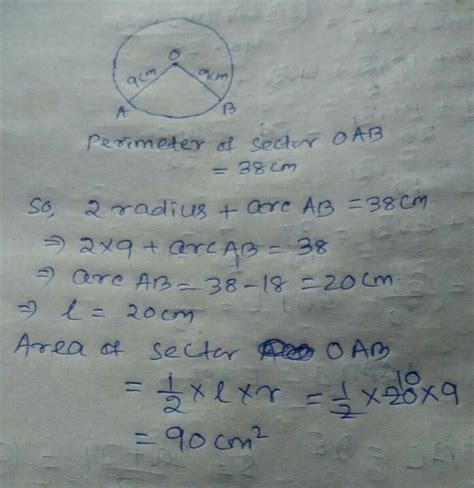 O
9cm 9cm
A B
Perimeter of sector OAB
= 38cm
So, 2 radius + arc AB = 38cm
⇒ 2×9 + arc AB = 38
⇒ arc AB = 38 - 18 = 20cm
⇒ l = 20cm
Area of sector OAB
= 1/2 × l × r = 1/2 × 20 10 × 9
= 90cm²